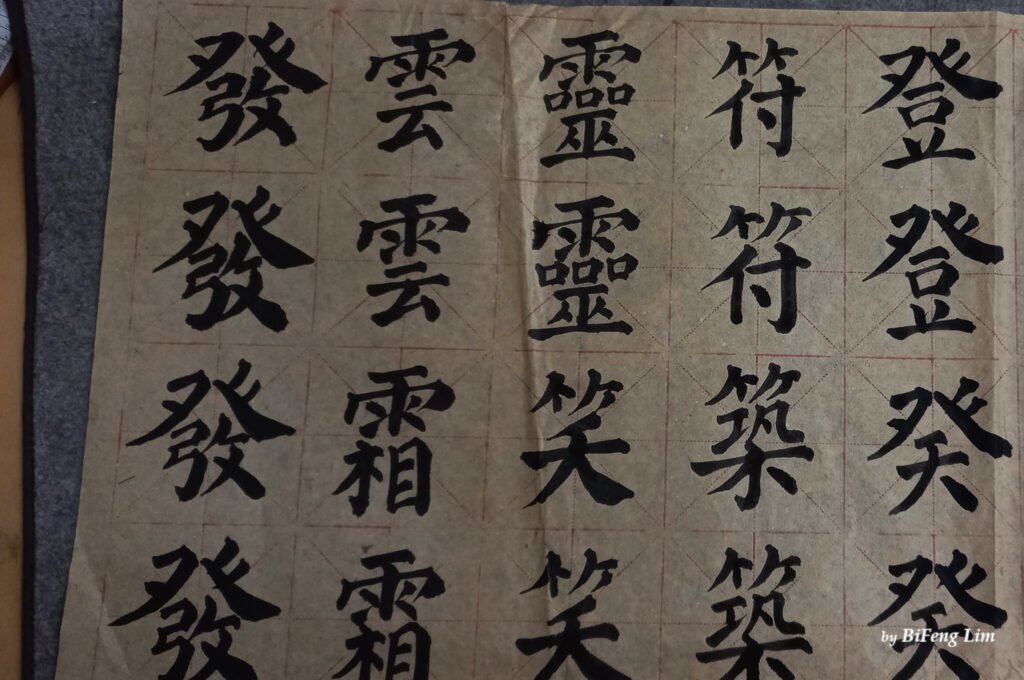 登登癸癸
符符築築
靈靈笑笑
雲雲霜霜
發發發發
by BiFeng Lim